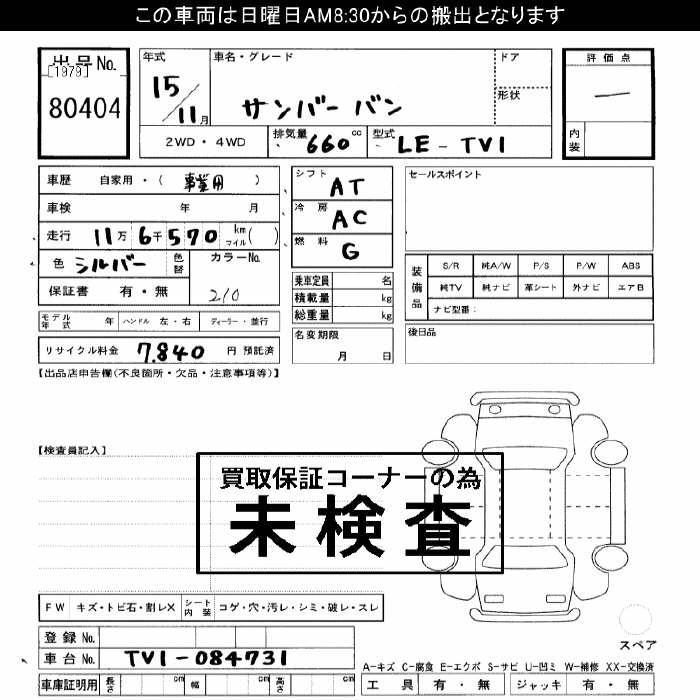 この車両は日曜日AM8:30からの搬出となります
出品No.
[1979]
80404
年式
15
11月
車名・グレード
サンバー バン
ドア
形状
評価点
―
内装
2WD・4WD
排気量 660 cc
型式 LE-TV1
車歴 自家用・( 事業用 )
車検 年 月
走行 11万6千570 km マイル( )
色 シルバー 色替
カラーNo. 210
保証書 有・無
シフト AT
冷房 AC
燃料 G
乗車定員 名
積載量 kg
総重量 kg
名変期限
月 日
セールスポイント
装備品
S/R 純A/W P/S P/W ABS
純TV 純ナビ 革シート 外ナビ エアB
ナビ型番:
後日品
モデル年式 年 ハンドル 左・右 ディーラー・並行
リサイクル料金 7,840 円 預託済
【出品店申告欄(不良箇所・欠品・注意事項等)】
【検査員記入】
買取保証コーナーの為
未検査
FW キズ・トビ石・割レX シート内装 コゲ・穴・汚レ・シミ・破レ・スレ
登録No.
車台No. TV1-084731
車庫証明用 長さ cm 幅 cm 高さ cm
スペア
A-キズ C-腐食 E-エクボ S-サビ U-凹ミ W-補修 XX-交換済
工具 有・無 ジャッキ 有・無